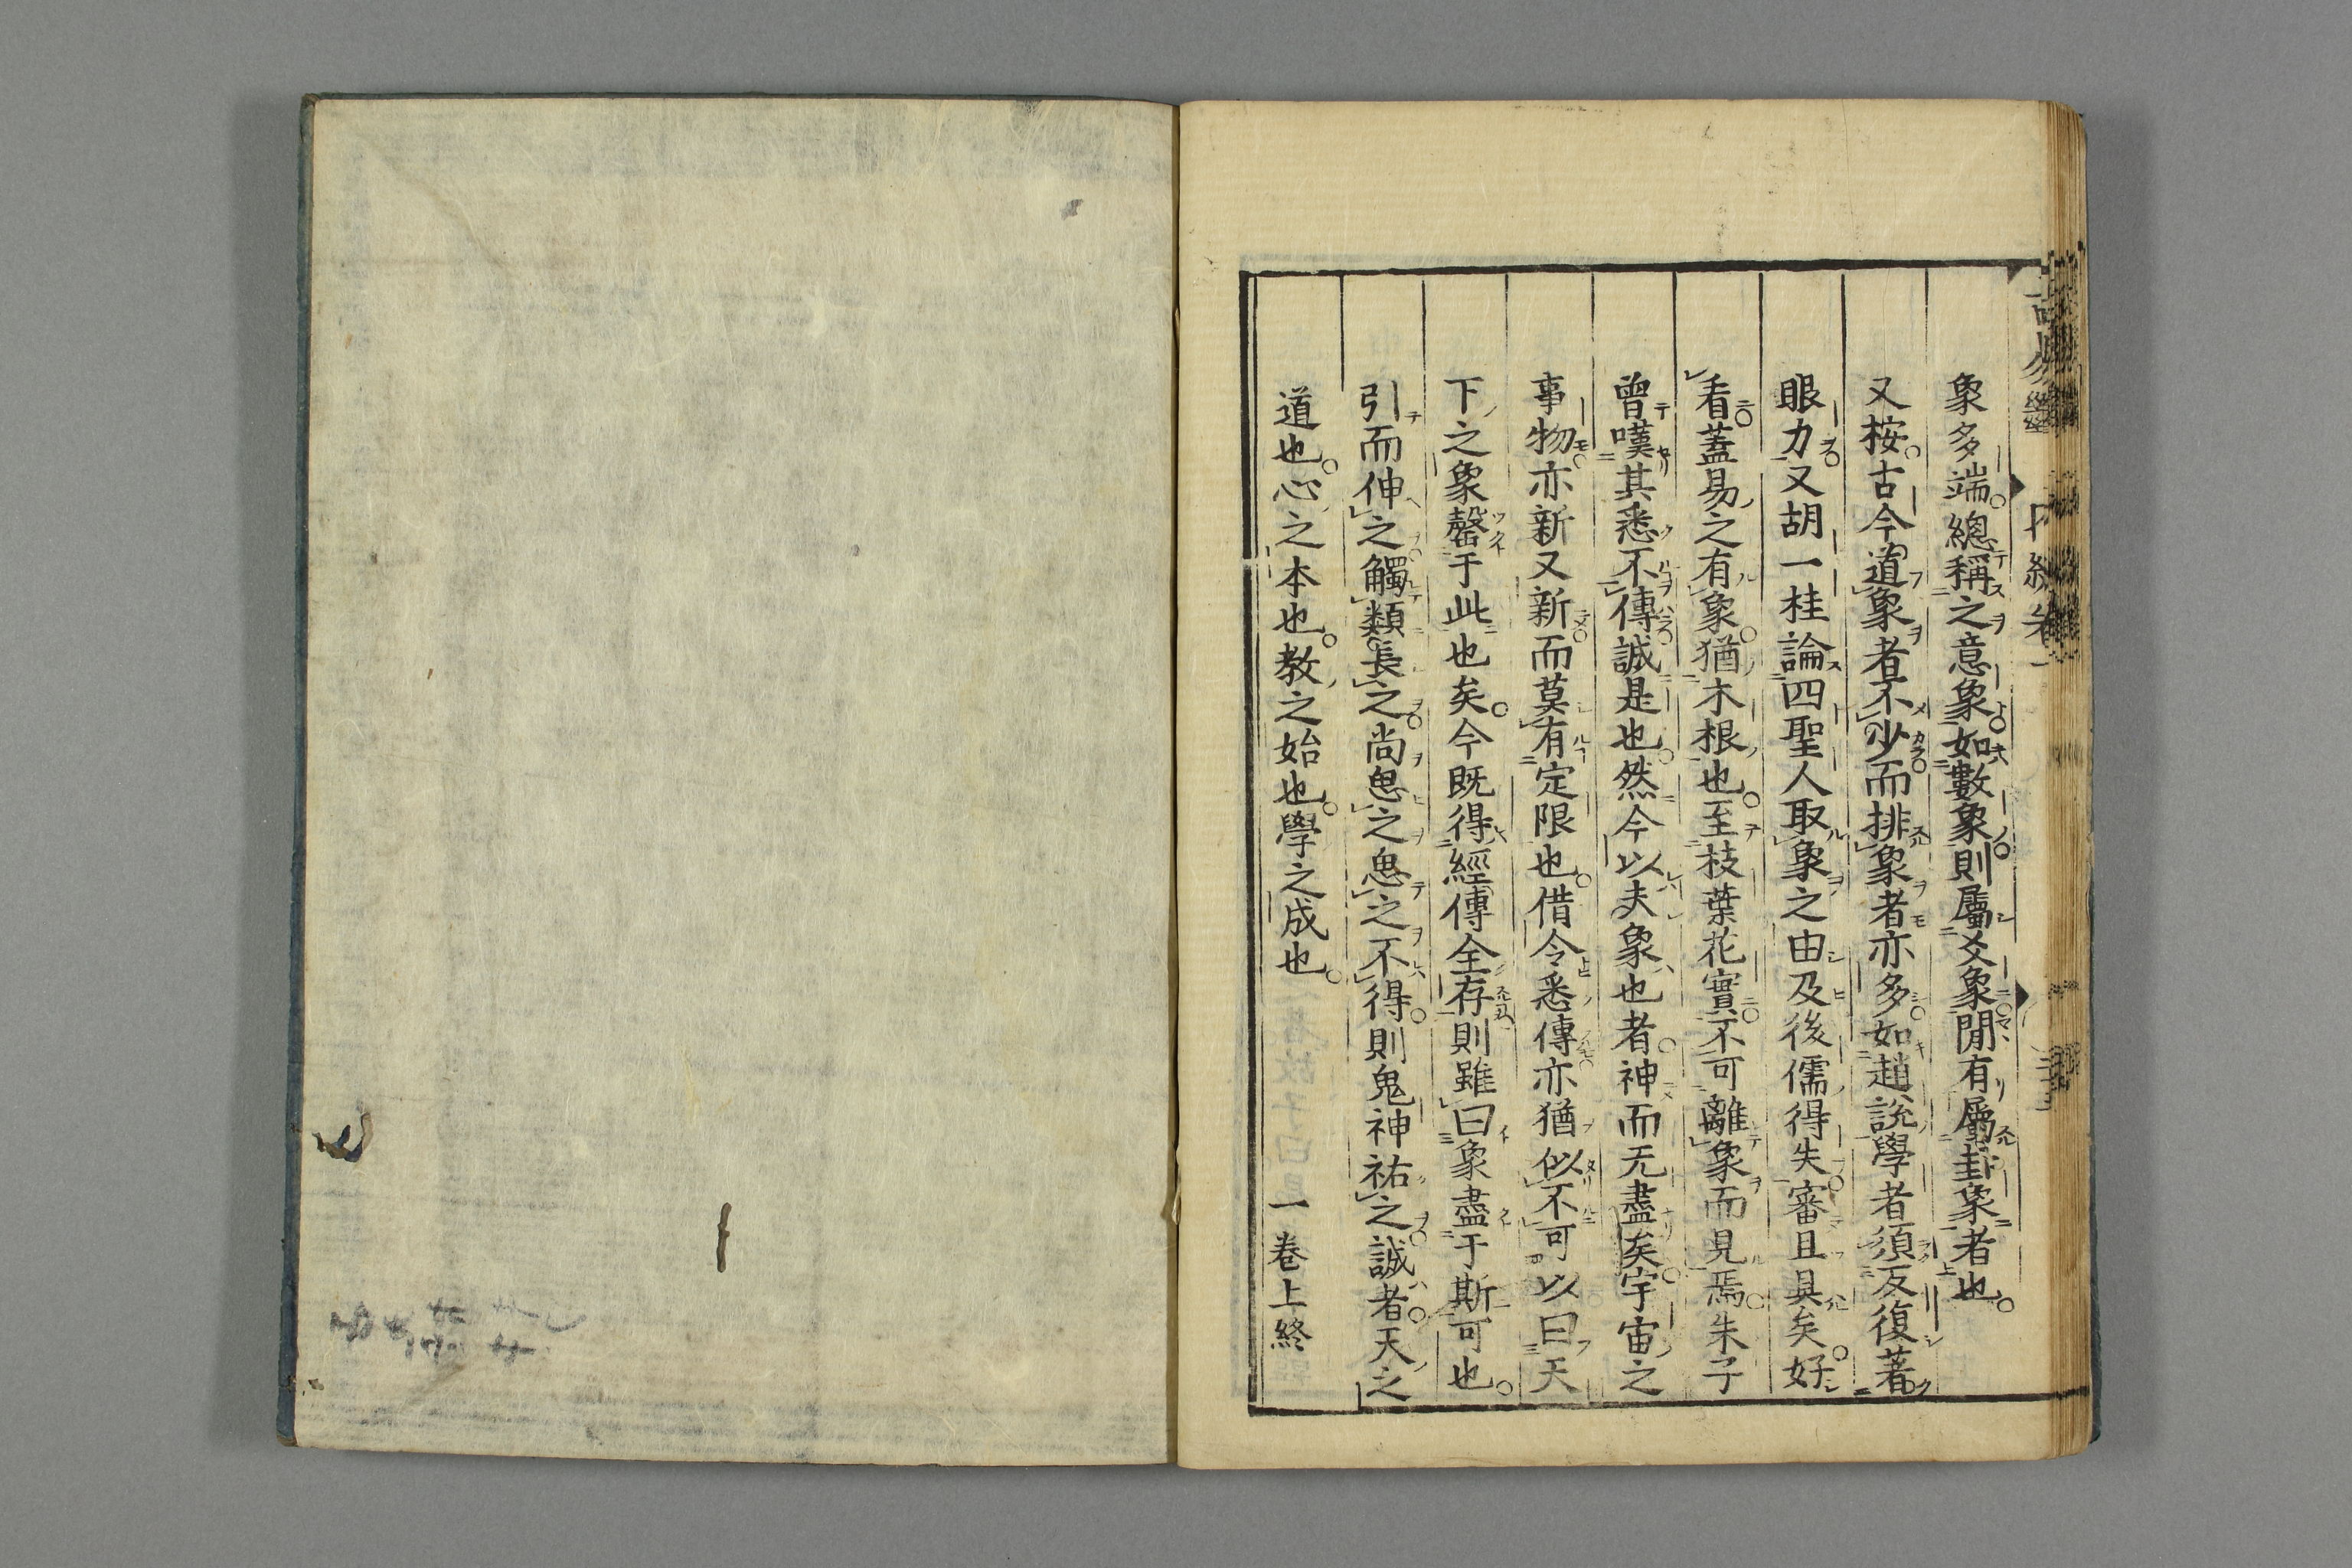 象多端。總稱之意象。如數象。則屬爻象。閒有屬卦象者也。
又按。古今道象者。不少。而排象者亦多。如趙說。學者須反復著
眼力。又胡一桂論四聖人取象之由。及後儒得失。審且具矣。好
看。蓋易之有象。猶木根也。至枝葉花實。不可離象而見焉。朱子
曾嘆其悉不傳。誠是也。然今以夫象也者。神而无盡矣。宇宙之
事物。亦新又新。而莫有定限也。借令悉傳。亦猶似不可以曰天
下之象罄于此也矣。今既得經傳全存。則雖曰象盡于斯可也。
引而伸之。觸類長之。尚思之思之。不得。則鬼神祐之。誠者。天之
道也。心之本也。教之始也。學之成也。
一卷上終